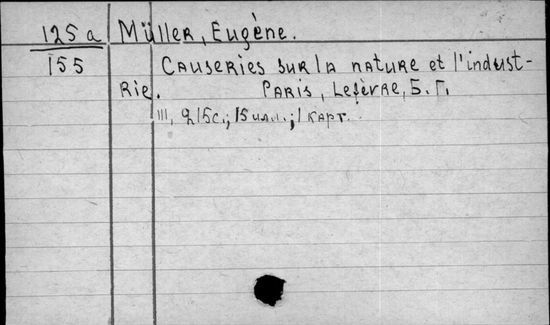 125a Müller, Eugène.
155 Causeries sur la nature et l'indust-
rie. Paris, Lefèvre, Б.Г.
III, 215с.; 15 илл.; 1 карт.